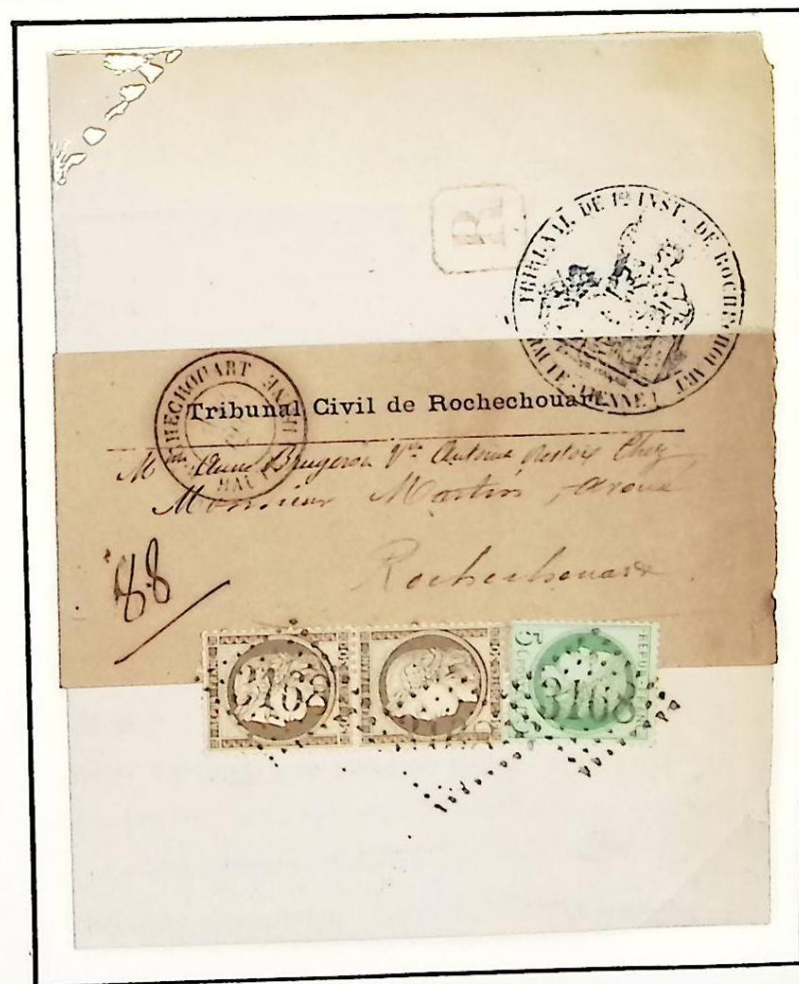 R
TRIBUNAL DE 1re INST. DE ROCHECHOUART
HTE VIENNE
ROCHECHOUART
Tribunal Civil de Rochechouart
Mme Anne Brugeron Vve Antoine Restoix Chez
Monsieur Martin, avoué
Rochechouart
88
3168
5
3168